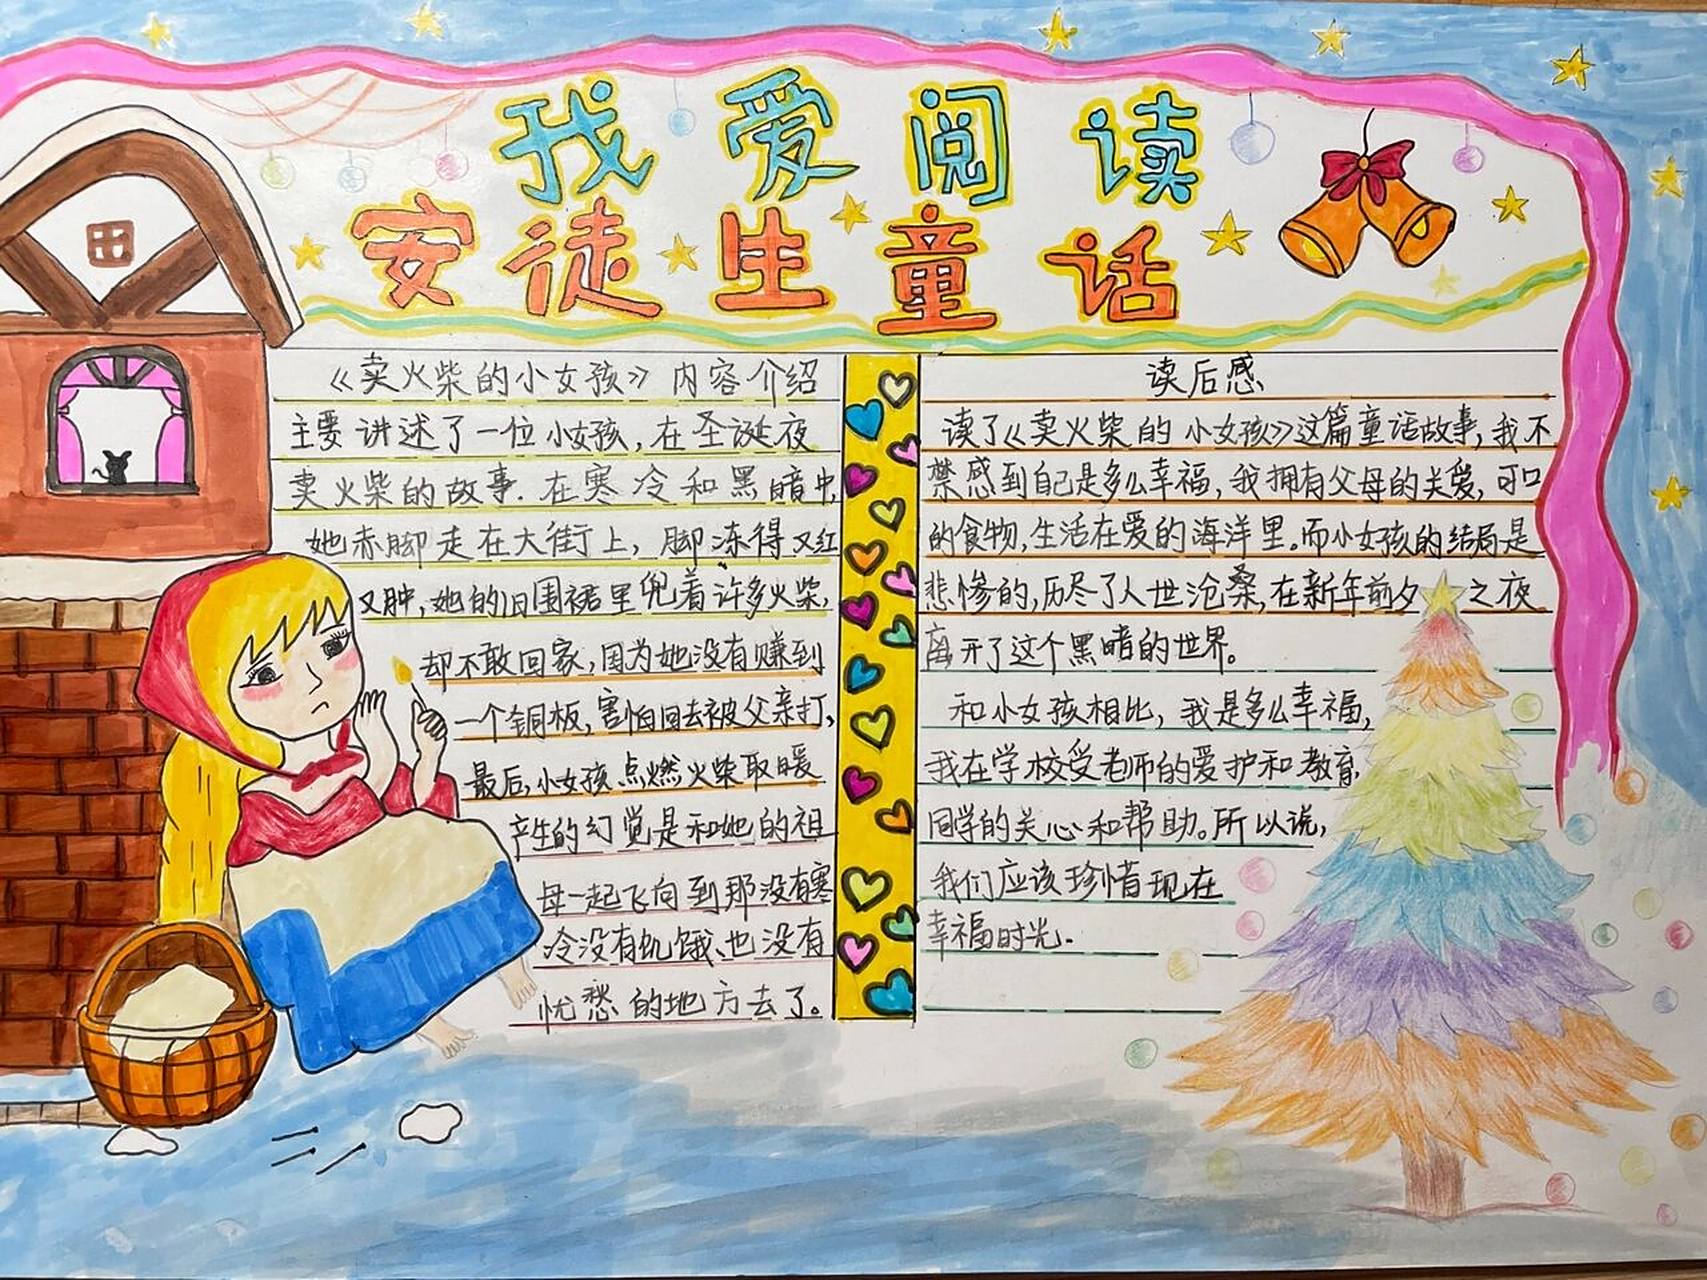 我爱阅读
安徒生童话
《卖火柴的小女孩》内容介绍
主要讲述了一位小女孩,在圣诞夜
卖火柴的故事.在寒冷和黑暗中,
她赤脚走在大街上,脚冻得又红
又肿,她的旧围裙里兜着许多火柴,
却不敢回家,因为她没有赚到
一个铜板,害怕回去被父亲打,
最后,小女孩点燃火柴取暖
产生的幻觉是和她的祖
母一起飞向到那没有寒
冷没有饥饿、也没有
忧愁的地方去了。
读后感
读了《卖火柴的小女孩》这篇童话故事,我不
禁感到自己是多么幸福,我拥有父母的关爱,可口
的食物,生活在爱的海洋里。而小女孩的结局是
悲惨的,历尽了人世沧桑,在新年前夕之夜
离开了这个黑暗的世界。
和小女孩相比,我是多么幸福,
我在学校受老师的爱护和教育,
同学的关心和帮助。所以说,
我们应该珍惜现在
幸福时光.